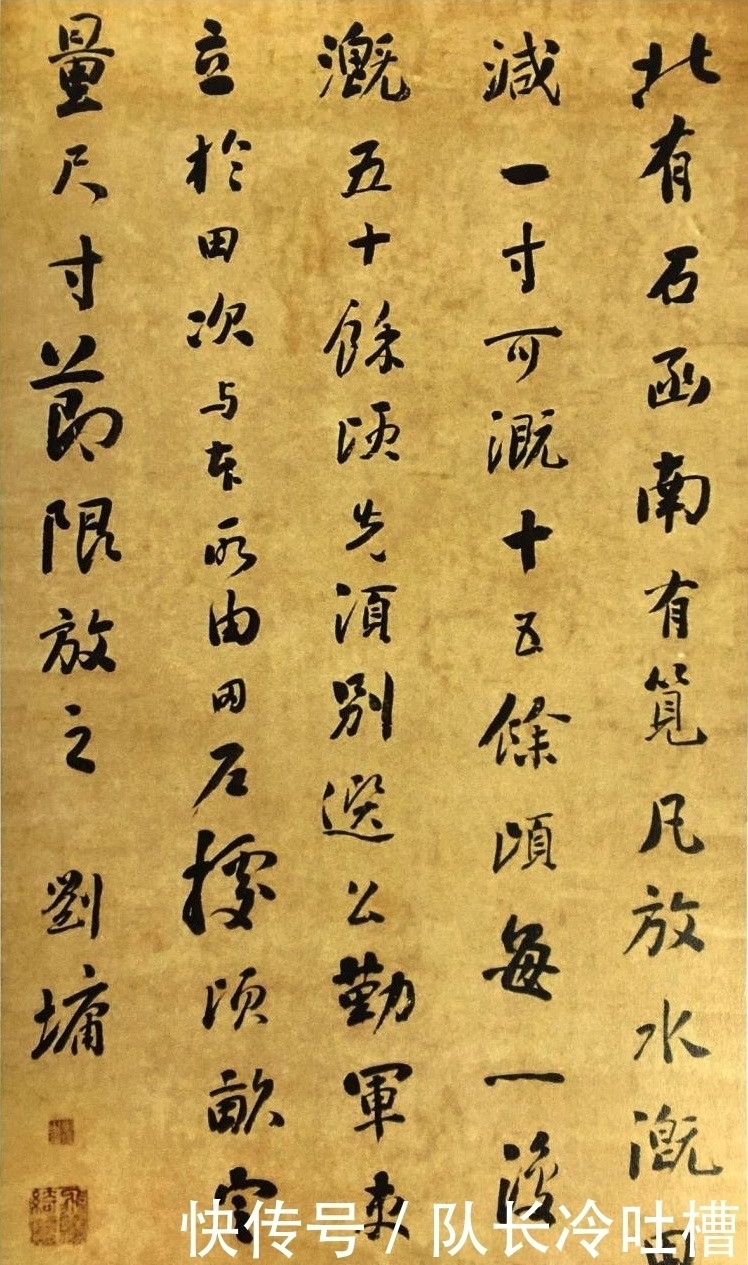 北有石函南有筧凡放水溉田
減一寸可溉十五餘頃每一復
溉五十餘頃先須別選公勤軍吏
立於田次与本所由田户據頃畝定
量尺寸節限放之 劉墉
快传号 / 队长冷吐槽